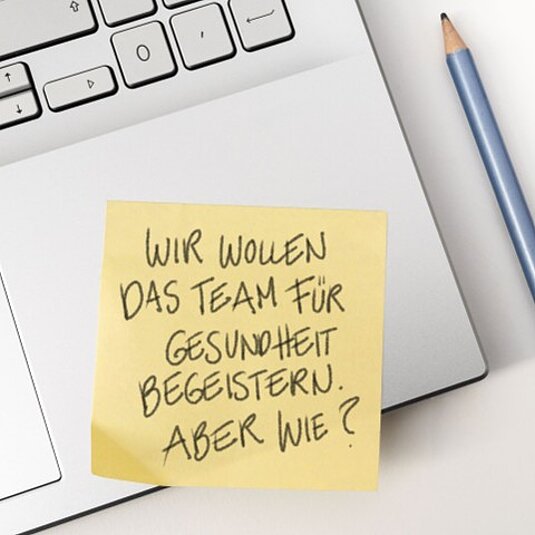 WIR WOLLEN
DAS TEAM FÜR
GESUNDHEIT
BEGEISTERN.
ABER WIE?